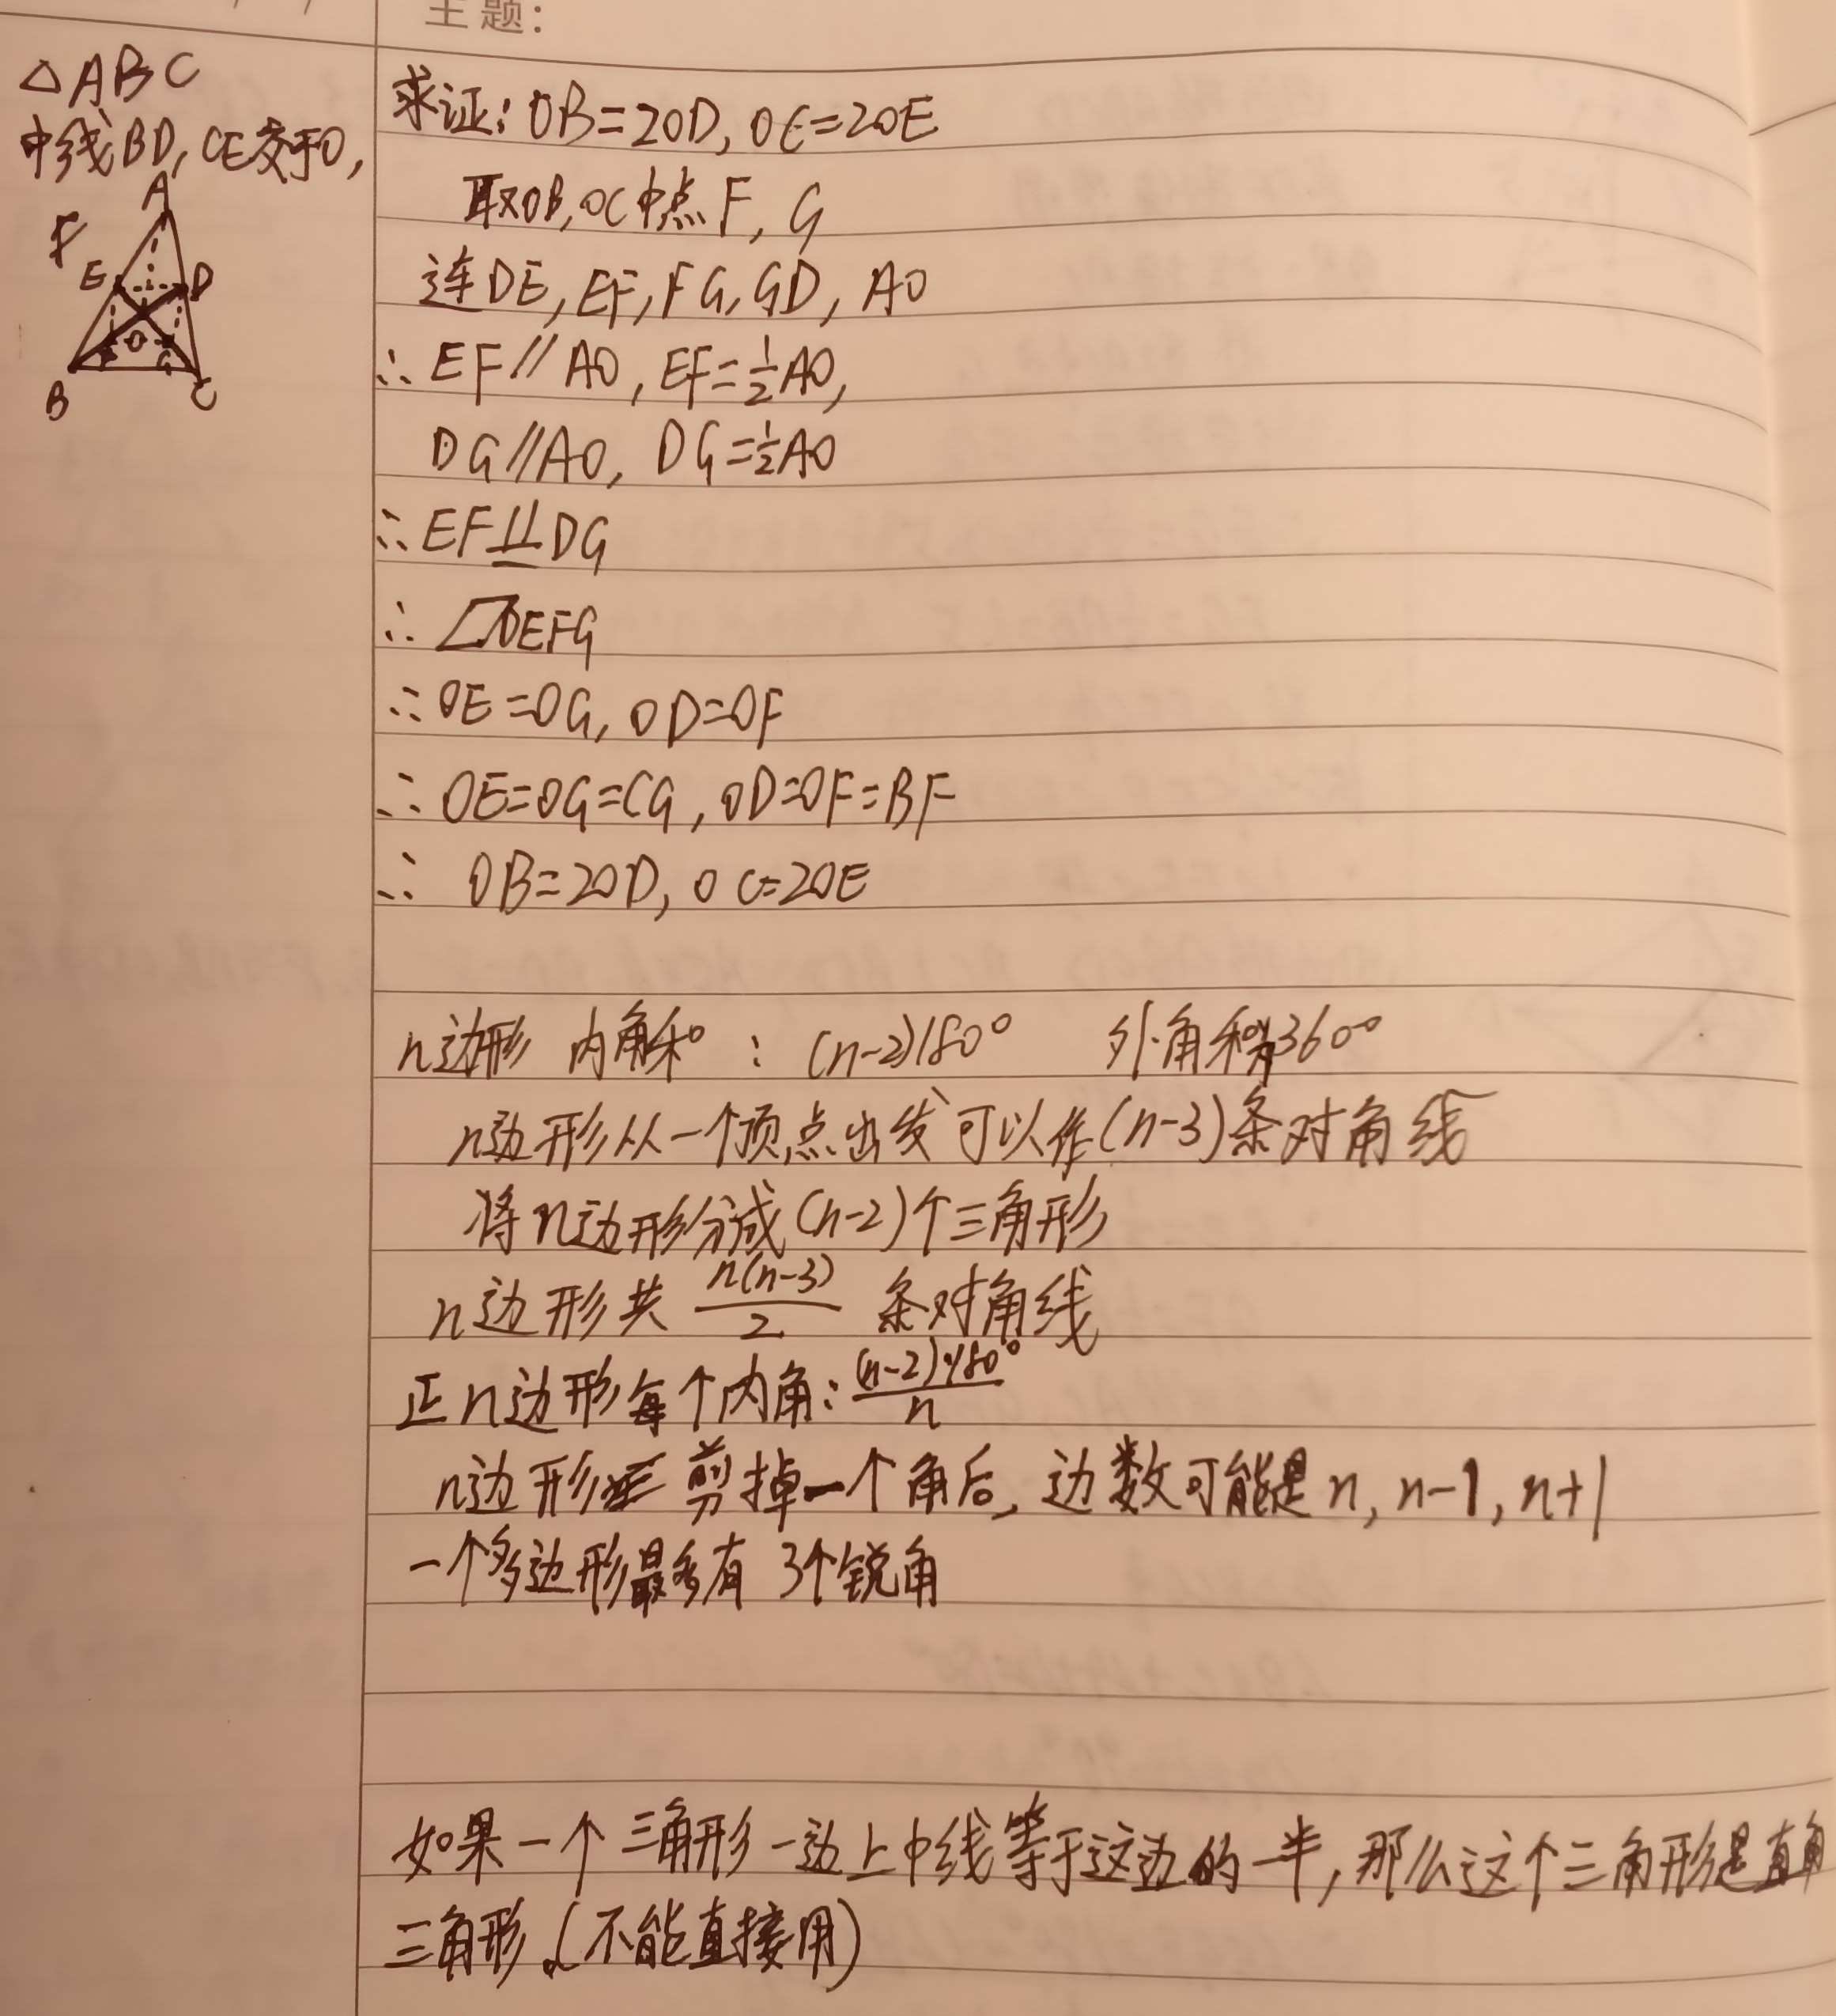 主题:
△ABC
中线BD,CE交于O,
A
F
E
D
O
F
G
B
C
求证:OB=2OD,OC=2OE
取OB,OC中点F,G
连DE,EF,FG,GD,AO
∴EF∥AO,EF=½AO,
DG∥AO,DG=½AO
∴EF⫫DG
∴▱DEFG
∴OE=OG,OD=OF
∴OE=OG=CG,OD=OF=BF
∴OB=2OD,OC=2OE
n边形 内角和:(n-2)180° 外角和为360°
n边形从一个顶点出发可以作(n-3)条对角线
将n边形分成(n-2)个三角形
n边形共 n(n-3)/2 条对角线
正n边形每个内角:(n-2)×180°/n
n边形 剪掉一个角后,边数可能是n,n-1,n+1
一个多边形最多有3个锐角
如果一个三角形一边上中线等于这边的一半,那么这个三角形是直角
三角形.(不能直接用)